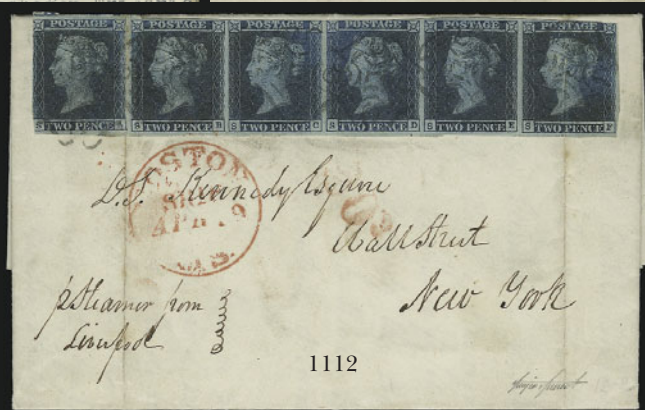 POSTAGE POSTAGE POSTAGE POSTAGE POSTAGE POSTAGE
S TWO PENCE A S TWO PENCE B S TWO PENCE C S TWO PENCE D S TWO PENCE E S TWO PENCE F
BOSTON
SHIP
APR 19
MS.
D.S. Kennedy Esquire
Wall Street
New York
p Steamer from
Liverpool
1112